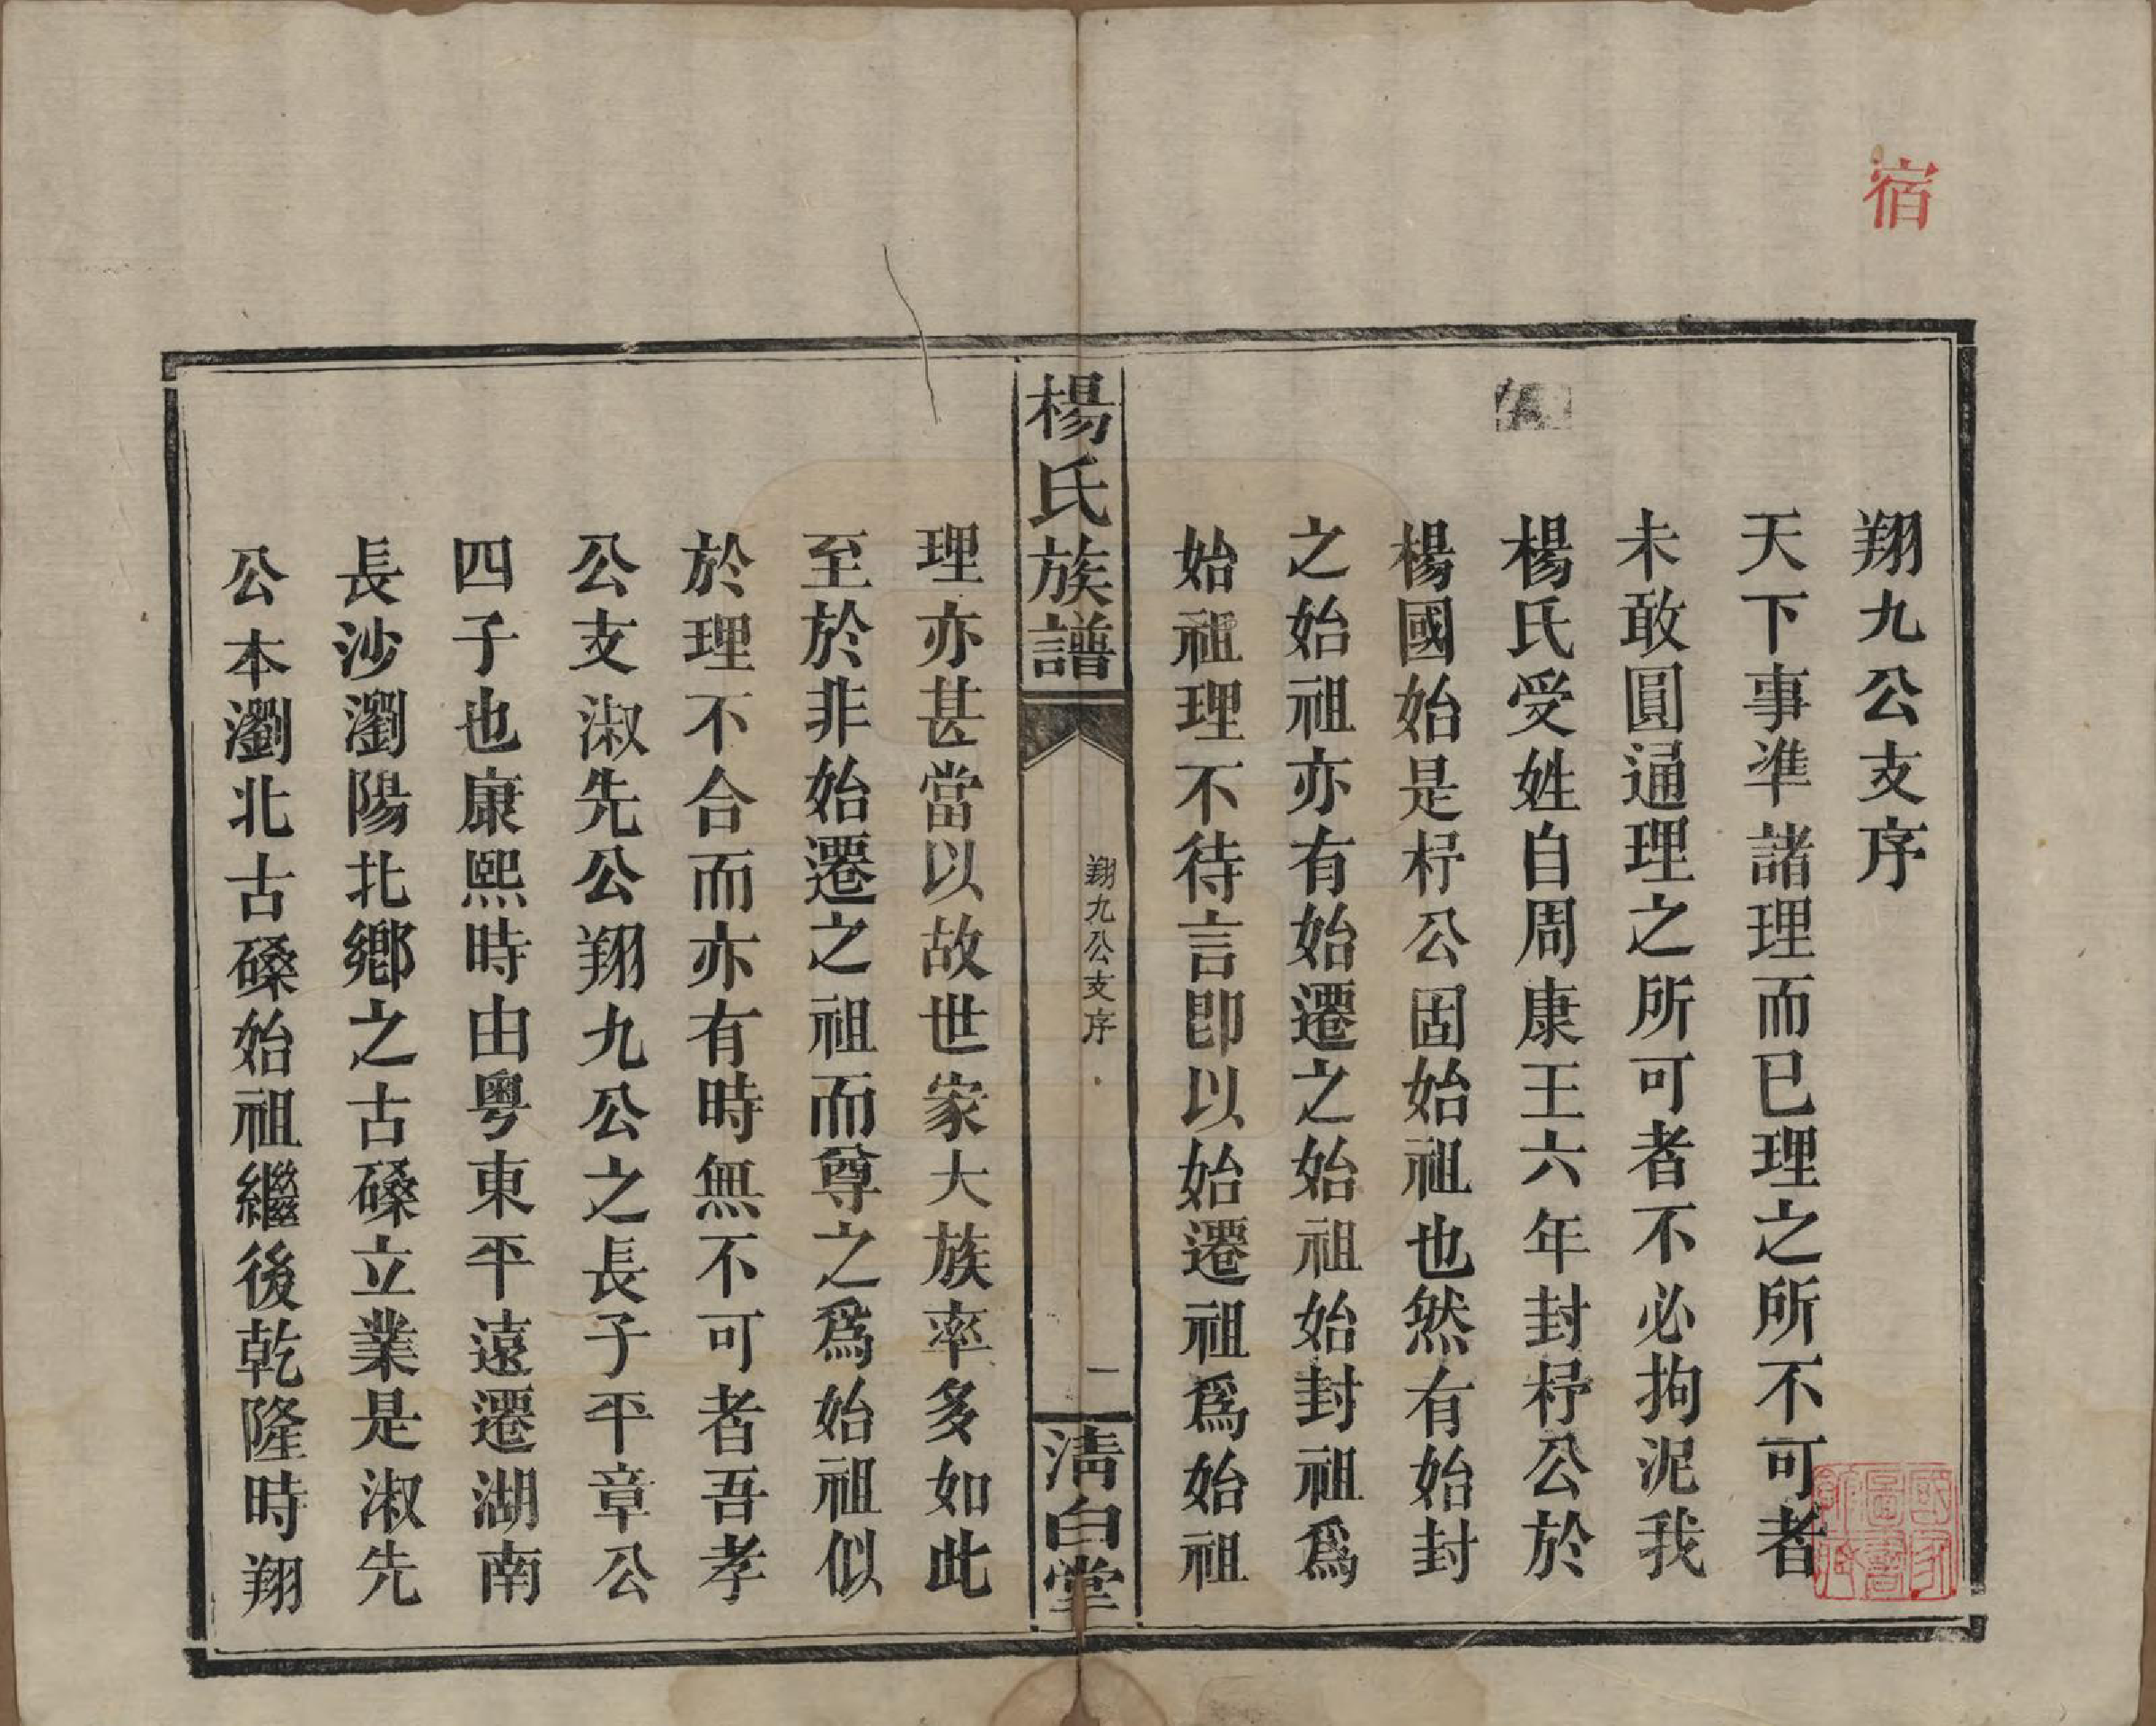 宿
翔九公支序
天下事準諸理而已理之所不可者
未敢圓通理之所可者不必拘泥我
楊氏受姓自周康王六年封杼公於
楊國始是杼公固始祖也然有始封
之始祖亦有始遷之始祖始封祖爲
始祖理不待言卽以始遷祖爲始祖
楊氏族譜
翔九公支序
一
淸白堂
理亦甚當以故世家大族率多如此
至於非始遷之祖而尊之爲始祖似
於理不合而亦有時無不可者吾孝
公支淑先公翔九公之長子平章公
四子也康熙時由粵東平遠遷湖南
長沙瀏陽北鄉之古磉立業是淑先
公本瀏北古磉始祖繼後乾隆時翔
國家
圖書
館藏